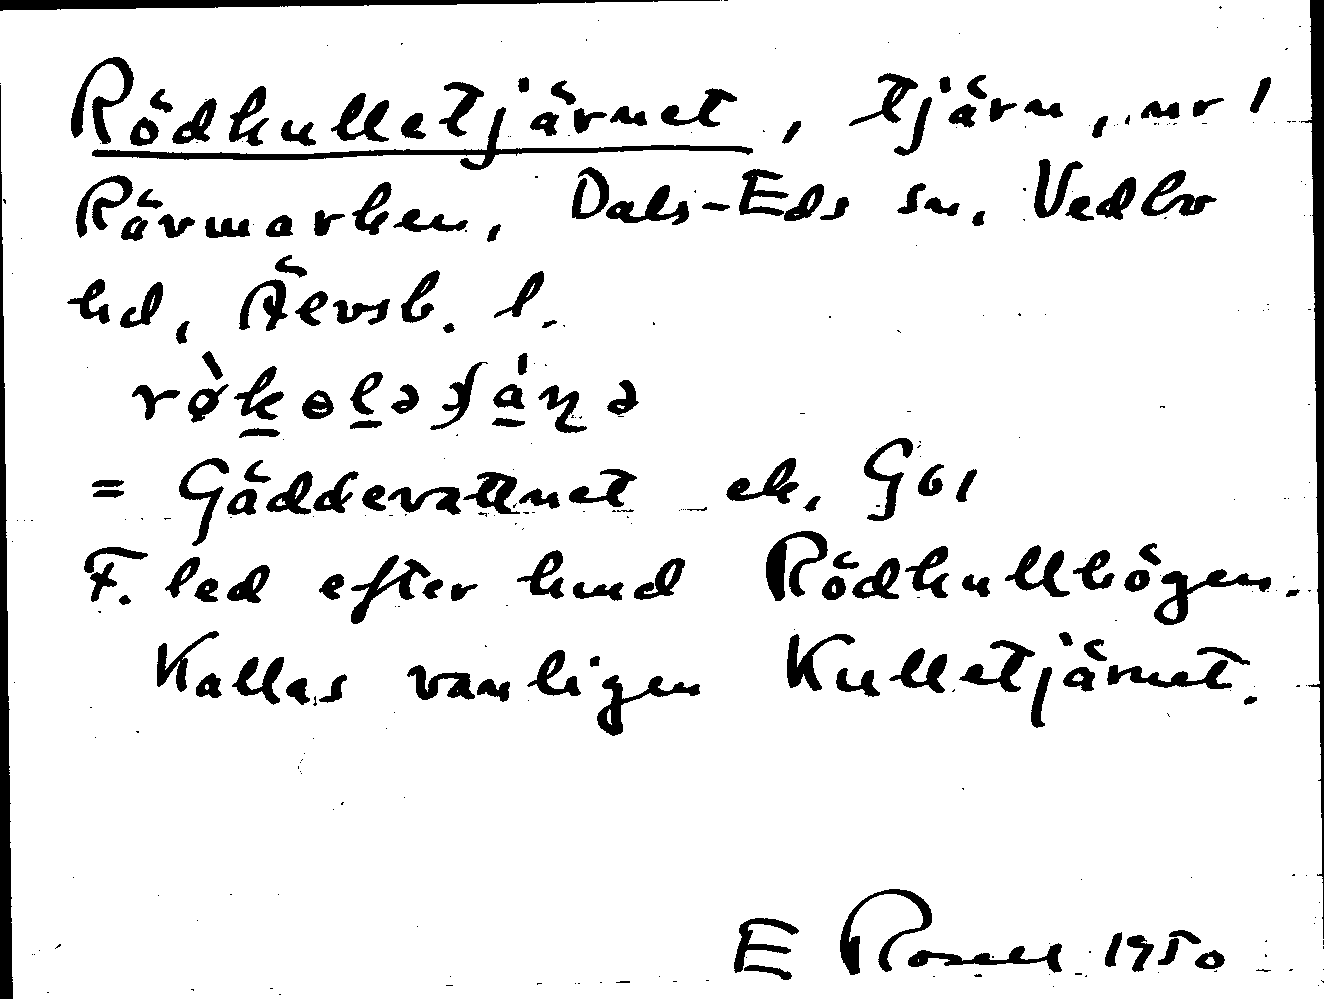 Rödkulletjärnet, tjärn, nr 1
Rävmarken, Dals-Eds sn. Vedbo
hd, Älvsb. l.
rø̀kɵləʃä́ɳə
= Gäddevattnet ek. G61
F. led efter hmd Rödkullhögen.
Kallas vanligen Kulletjärnet.
E Rosell 1950